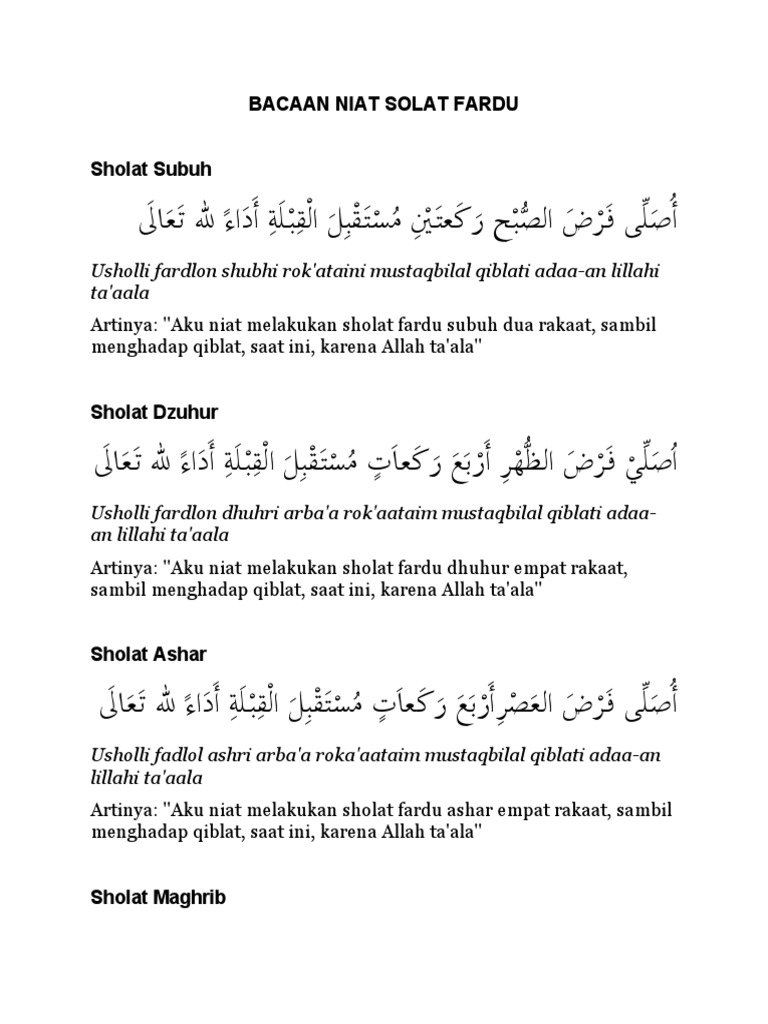 BACAAN NIAT SOLAT FARDU
Sholat Subuh
أُصَلِّى فَرْضَ الصُّبْحِ رَكَعتَيْنِ مُسْتَقْبِلَ الْقِبْلَةِ أَدَاءً لله تَعَالَى
Usholli fardlon shubhi rok'ataini mustaqbilal qiblati adaa-an lillahi
ta'aala
Artinya: "Aku niat melakukan sholat fardu subuh dua rakaat, sambil
menghadap qiblat, saat ini, karena Allah ta'ala"
Sholat Dzuhur
اُصَلِّيْ فَرْضَ الظُّهْرِ أَرْبَعَ رَكَعاَتٍ مُسْتَقْبِلَ الْقِبْلَةِ أَدَاءً لله تَعَالَى
Usholli fardlon dhuhri arba'a rok'aataim mustaqbilal qiblati adaa-
an lillahi ta'aala
Artinya: "Aku niat melakukan sholat fardu dhuhur empat rakaat,
sambil menghadap qiblat, saat ini, karena Allah ta'ala"
Sholat Ashar
أُصَلِّى فَرْضَ العَصْرِأَرْبَعَ رَكَعاَتٍ مُسْتَقْبِلَ الْقِبْلَةِ أَدَاءً لله تَعَالَى
Usholli fadlol ashri arba'a roka'aataim mustaqbilal qiblati adaa-an
lillahi ta'aala
Artinya: "Aku niat melakukan sholat fardu ashar empat rakaat, sambil
menghadap qiblat, saat ini, karena Allah ta'ala"
Sholat Maghrib